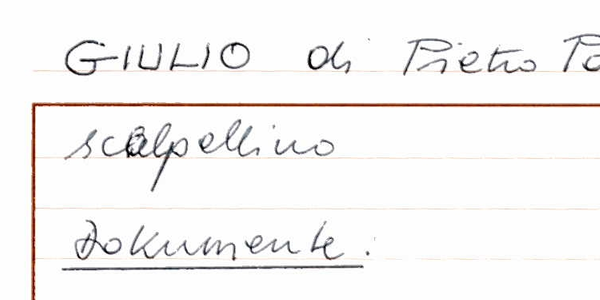 GIULIO di Pietro
scalpellino
Dokumente: